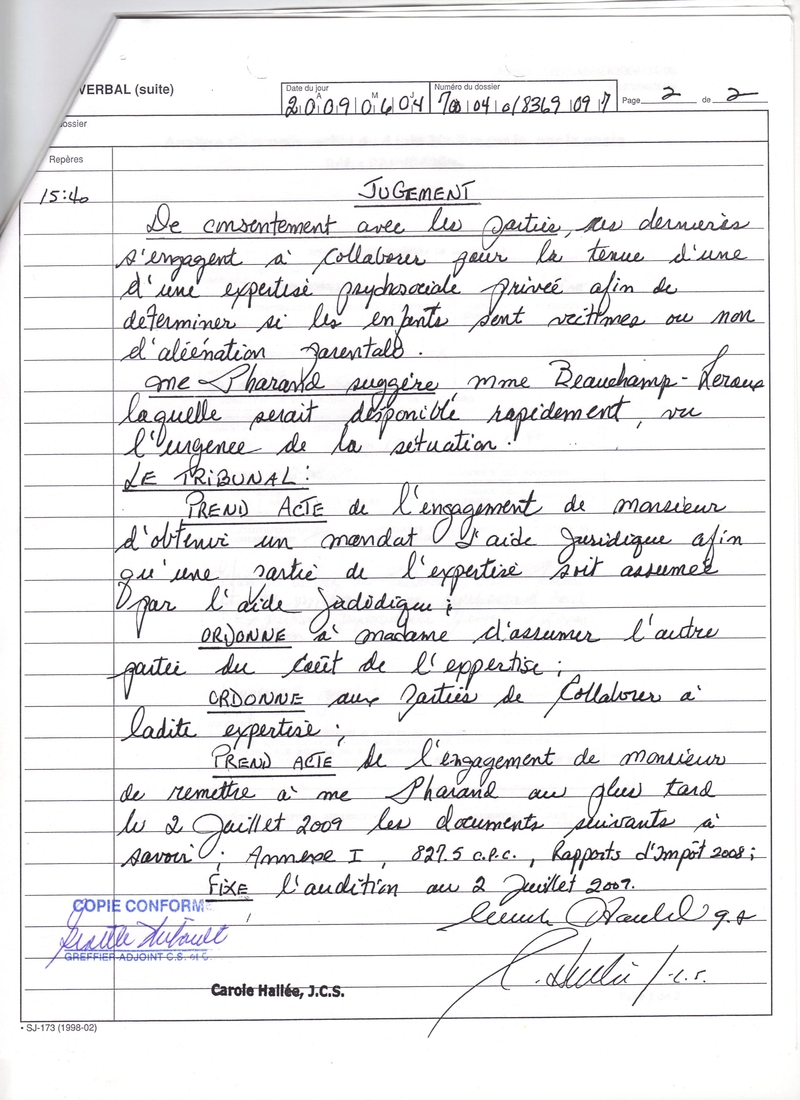 VERBAL (suite)
Date du jour
A M J
2009 06 04
Numéro du dossier
700 04 018369 097
Page 2 de 2
dossier
Repères
15:40
JUGEMENT
De consentement avec les parties, ces dernières
s'engagent à collaborer pour la tenue d'une
d'une expertise psychosociale privée afin de
determiner si les enfants sont victimes ou non
d'aliénation parentale.
me Pharand suggère mme Beauchamp-Leroux
laquelle serait disponible rapidement, vu
l'urgence de la situation.
LE TRIBUNAL:
PREND ACTE de l'engagement de monsieur
d'obtenir un mandat d'aide juridique afin
qu'une partie de l'expertise soit assumée
par l'aide juridique;
ORDONNE à madame d'assumer l'autre
partie du coût de l'expertise;
ORDONNE aux parties de collaborer à
ladite expertise;
PREND ACTE de l'engagement de monsieur
de remettre à me Pharand au plus tard
le 2 juillet 2009 les documents suivants à
savoir; Annexe I, 827.5 c.p.c., Rapports d'Impôt 2008;
FIXE l'audition au 2 juillet 2009.
g.a
COPIE CONFORME
GREFFIER-ADJOINT C.S. et C.
Carole Hallée, J.C.S.
j.c.s.
• SJ-173 (1998-02)